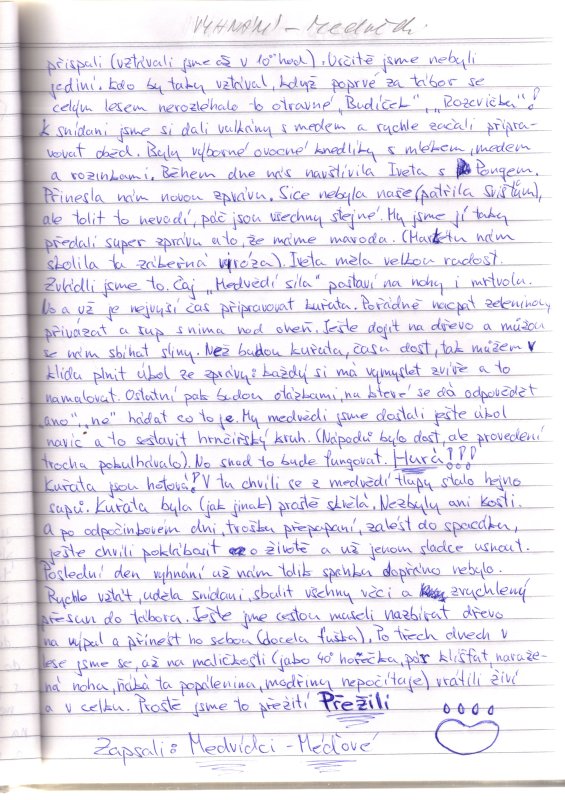 VYHNÁNÍ - Medvědi
přispali (vztávali jsme až v 10°° hod). Určitě jsme nebyli
jediní. kdo by taky vztával, když poprvé za tábor se
celým lesem nerozléhalo to otravné „Budíček“, „Rozcvička“!
K snídani jsme si dali vafkány s medem a rychle začali připra-
vovat oběd. Byly výborné ovocné knedlíky s mlékem, medem
a rozinkami. Během dne nás navštívila Iveta s Pongem.
Přinesla nám novou zprávu. Sice nebyla naše (patřila Svišťům),
ale tolit to nevadí, páč jsou všechny stejné. My jsme jí taky
předali super zprávu a to, že máme maroda. (Markétu nám
skolila ta záběrná viróza). Iveta měla velkou radost.
Zvládli jsme to. Čaj „Medvědí síla“ postaví na nohy i mrtvola.
No a už je nejvyší čas připravovat kuřata. Pořádně nacpat zeleninou,
přivázat a šup s nima nad oheň. Ještě dojít na dřevo a můžou
se nám sbíhat sliny. Než budou kuřata, času dost, tak můžem v
klidu plnit úkol ze zprávy: každý si má vymyslet zvíře a to
namalovat. Ostatní pak budou otázkami, na které se dá odpovědět
„ano“, „ne“ hádat co to je. My medvědi jsme dostali ješte úkol
navíc a to sestavit hrnčířský kruh. (Nápadů bylo dost, ale provedení
trocha pokulhávalo). No snad to bude fungovat. Hurá!!!
Kuřata jsou hotová! V tu chvíli se z medvědí tlupy stalo hejno
supů. Kuřata byla (jak jinak) prostě skvělá. Nezbyly ani kosti.
A po odpočinkovém dni, trošku přepapaní, zalést do spacáku,
ješte chvíli poklábosit o životě a už jenom sladce usnout.
Poslední den vyhnání už nám tolik spánku dopřáno nebylo.
Rychle vztát, uděla snídani, sbalit všechny věci a zrychlený
přesun do tábora. Ješte jme cestou museli nazbírat dřevo
na výpal a přinést ho sebou (docela fuška). Po třech dnech v
lese jsme se, až na maličkosti (jako 40° horečka, pár klíšťat, naraže-
ná noha, ňáká ta popálenina, modřiny nepočítaje) vrátili živí
a v celku. Prostě jsme to přežití Přežili
Zapsali: Medvídci - Méďové